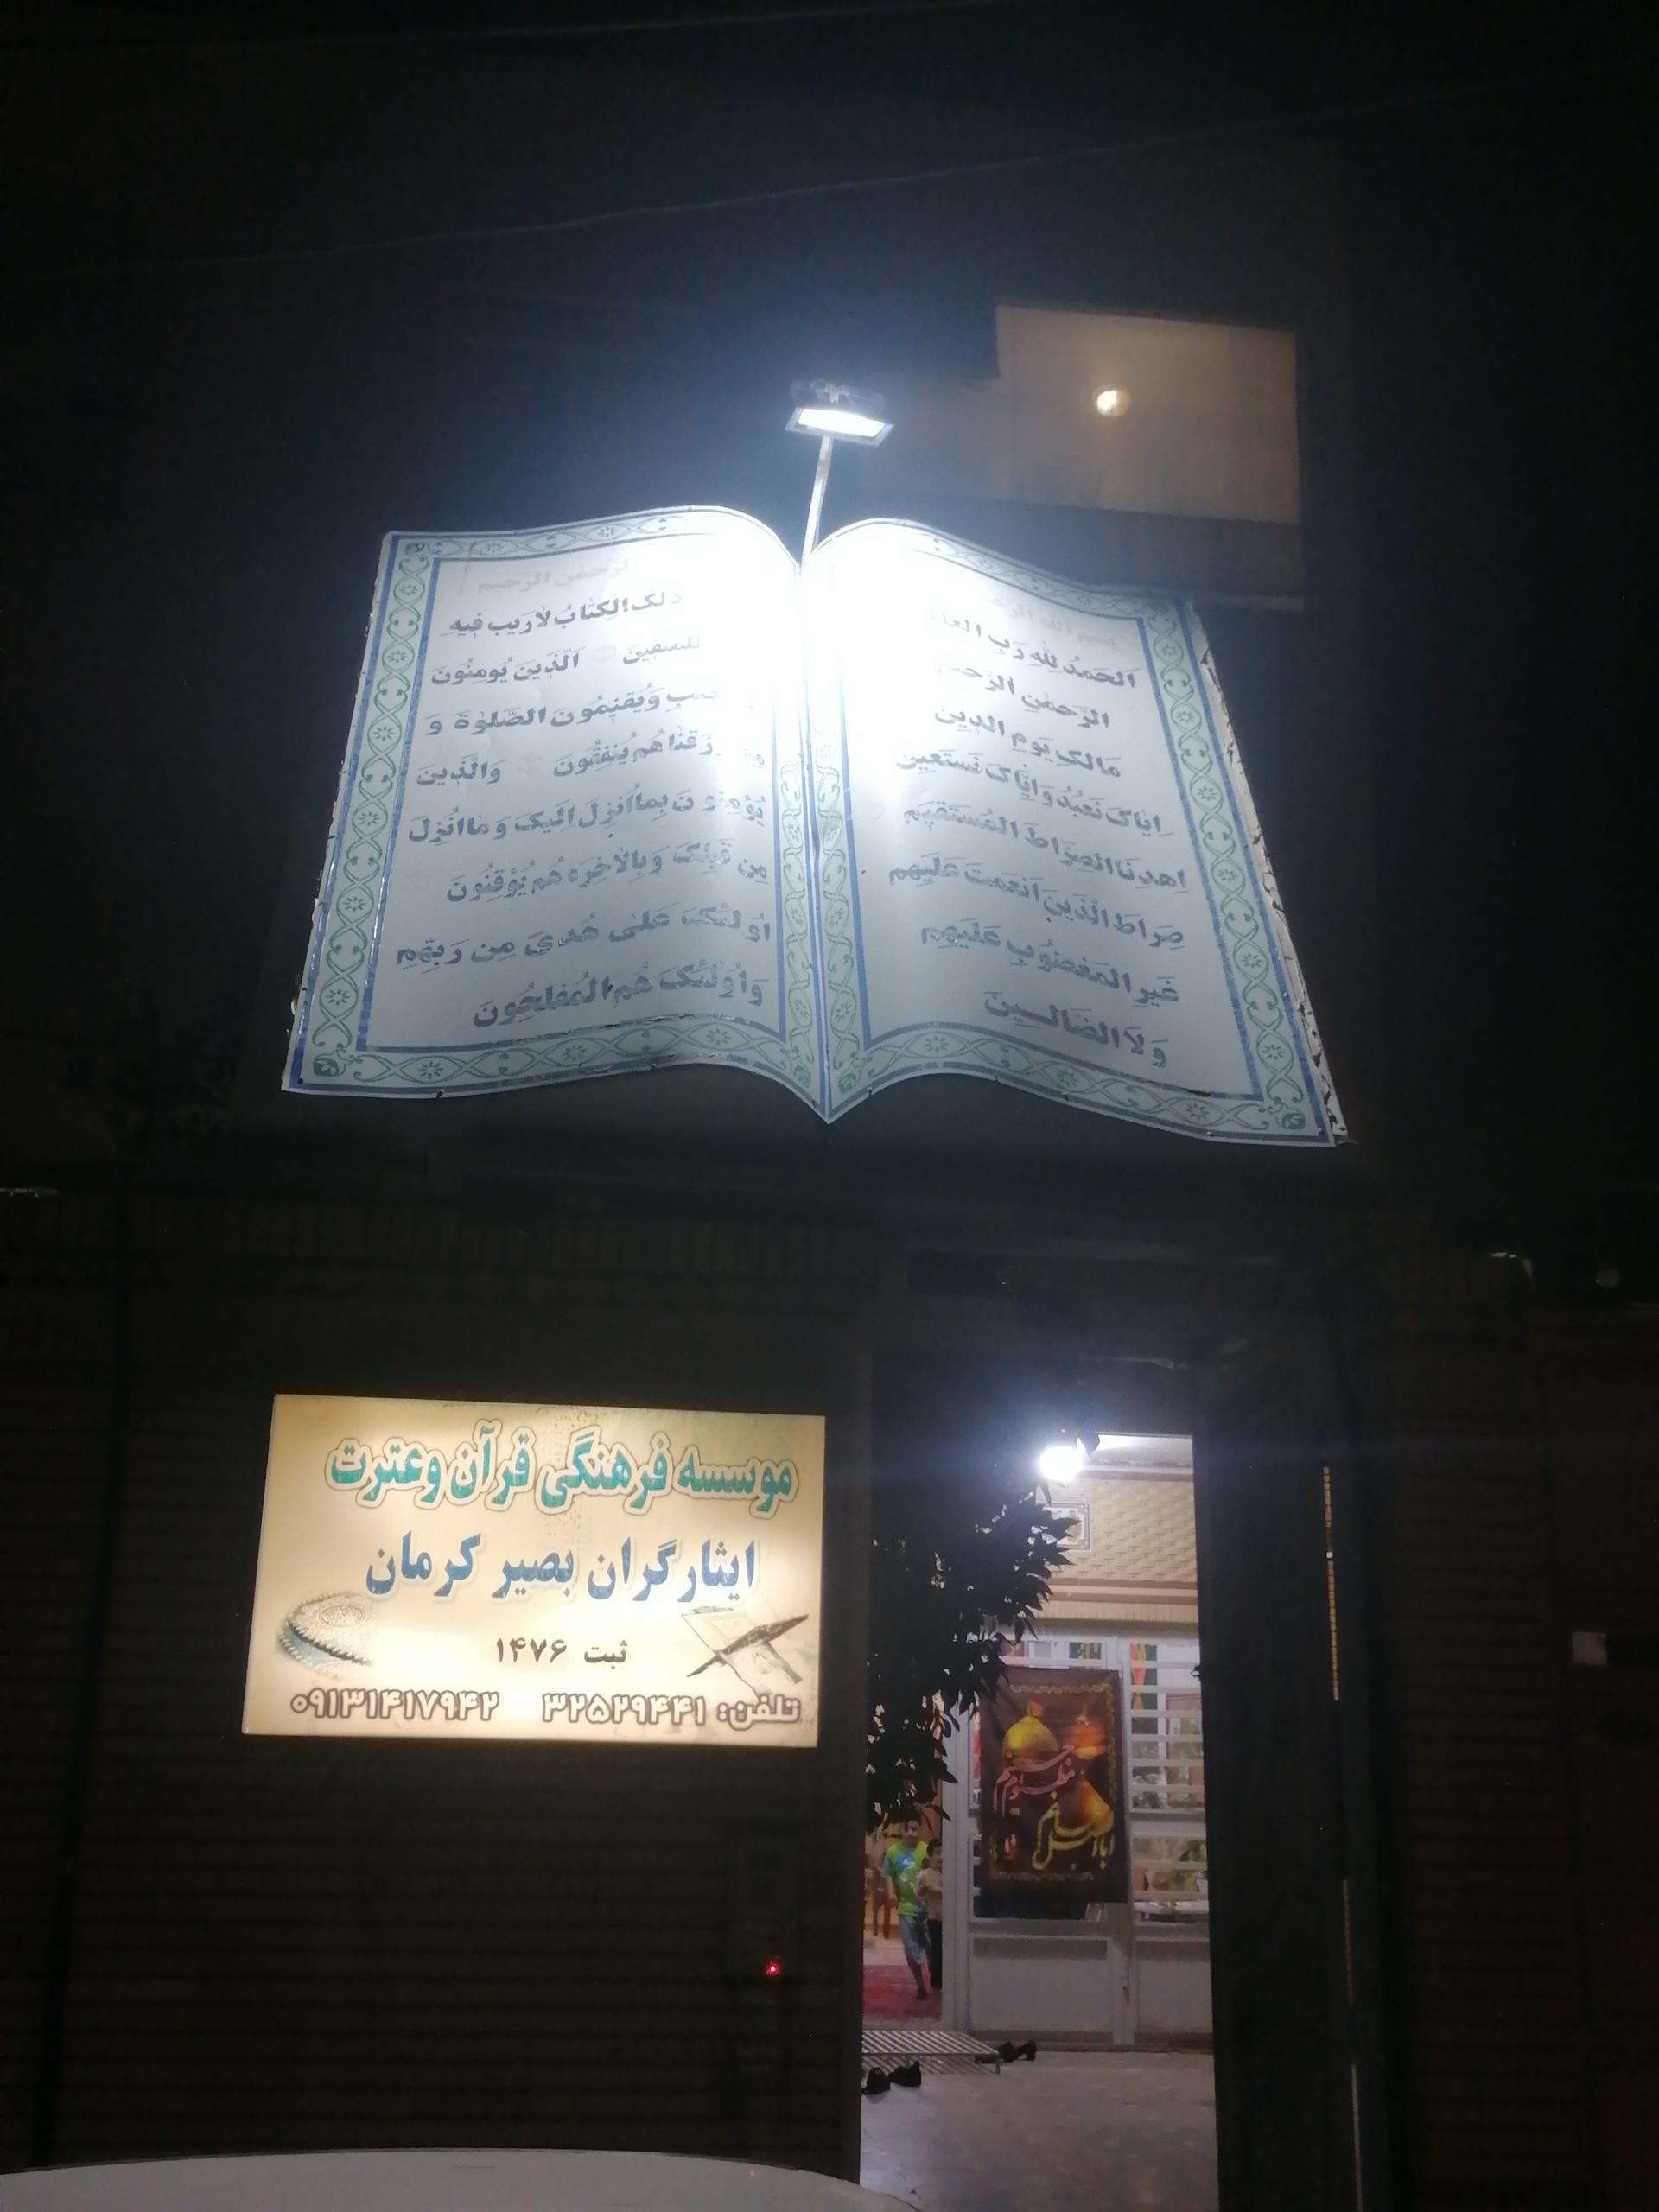 بسم الله الرحمن
الحمدُ للهِ رَبِ
الرَحمنِ الرَحیمِ
مَالکِ یَومِ الدینِ
اِیّاکَ نَعبُدُ وَ ایّاکَ نَستَعین
اِهدِنَا الصِرَاطَ المُستَقیِم
صِرَاطَ الَّذینَ اَنعَمتَ عَلَیهِم
غَیرِ المَغضوُبِ عَلَیهِم
وَلاَ الضَالّـین
الرَحمن الرَحیم
ذلک الکِتابُ لاَریبَ فیهِ
الَّذینَ یُومِنُون
وَیُقیِمُونَ الصَّلوٰةَ وَ
رَزَقناهُم یُنفِقُون وَالَّذینَ
یُؤمِنوُنَ بِمااُنزِلَ الَیکَ وَ مااُنزِلَ
مِن قَبلِکَ وَبِالاخِرَه هُم یُوقِنُونَ
اوُلئکَ عَلی هُدیً مِن رَبِهّمِ
وَاوُلئکَ هُمُ المُفلحُونَ
موسسه فرهنگی قرآن وعترت
ایثارگران بصیر کرمان
ثبت ۱۴۷۶
تلفن: ۳۲۵۲۹۴۴۱ ۰۹۱۳۱۴۱۷۹۴۲